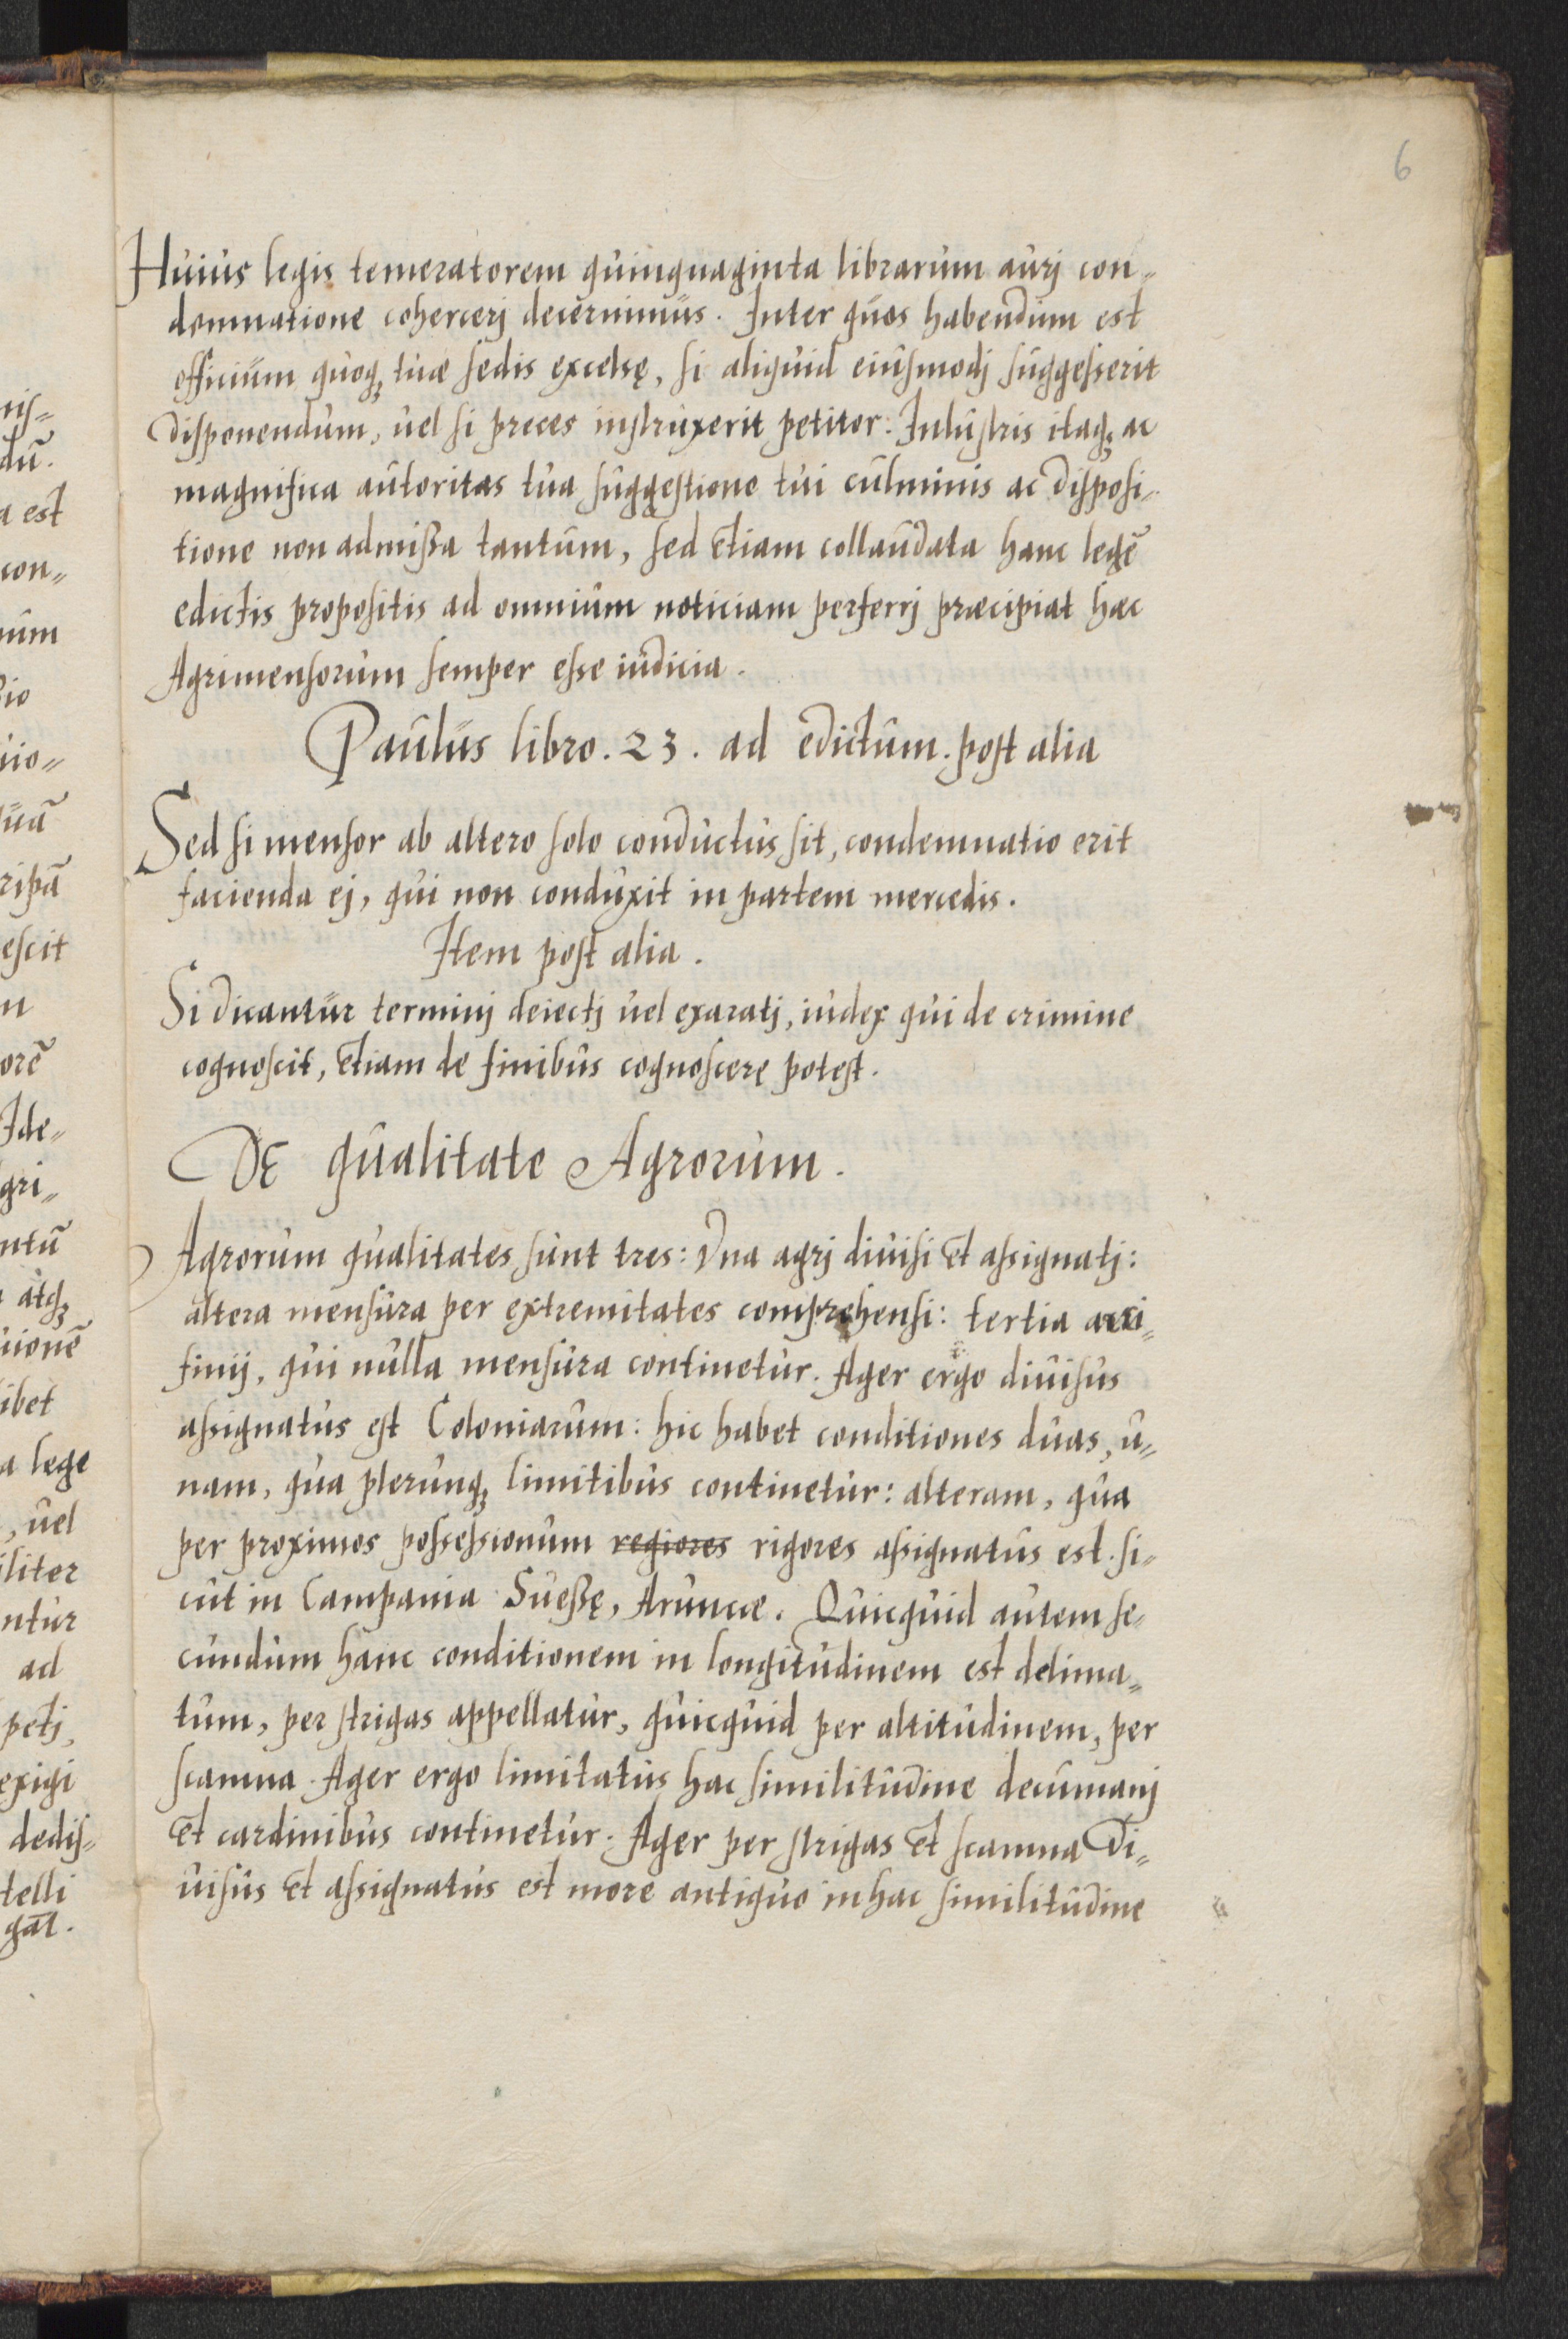 6
Huius legis temeratorem quinquaginta librarum aurj con„
domnatione cohercerj decernimus. Inter quos habendum est
officium quoq; tuæ sedis excelsę, si aliquid eiusmodj suggesserit
disponendum, uel si preces instruxerit petitor: Inlustris itaq; ac
magnifica autoritas tua suggestione tui culminis ac disposi„
tione non admißa tantum, sed etiam collaudata hanc legẽ
edictis propositis ad omnium noticiam perferrj præcipiat hæc
Agrimensorum semper esse iudicia.
Paulus libro. 23. ad edictum. post alia
Sed si mensor ab altero solo conductus sit, condemnatio erit
facienda ej, qui non conduxit in partem mercedis.
Item post alia.
Si dicantur terminj deiectj uel exaratj, iudex qui de crimine
cognoscit, etiam de finibus cognoscerę potest.
De qualitate Agrorum.
Agrorum qualitates sunt tres: Vna agrj diuisi et assignatj:
altera mensura per extremitates comprehensi: tertia arci„
finij, qui nulla mensura continetur. Ager ergo diuisus
assignatus est Coloniarum: hic habet conditiones duas, u„
nam, qua plerunq; limitibus continetur: alteram, qua
per proximos possessionum regiores rigores assignatus est. si„
cut in Campania Sueßę, Aruncæ. Quicquid autem se„
cundum hanc conditionem in longitudinem est delima„
tum, per strigas appellatur, quicquid per altitudinem, per
scamna. Ager ergo limitatus hac similitudine decumanj
et cardinibus continetur. Ager per strigas et scamna di„
uisus et assignatus est more antiquo in hac similitudine